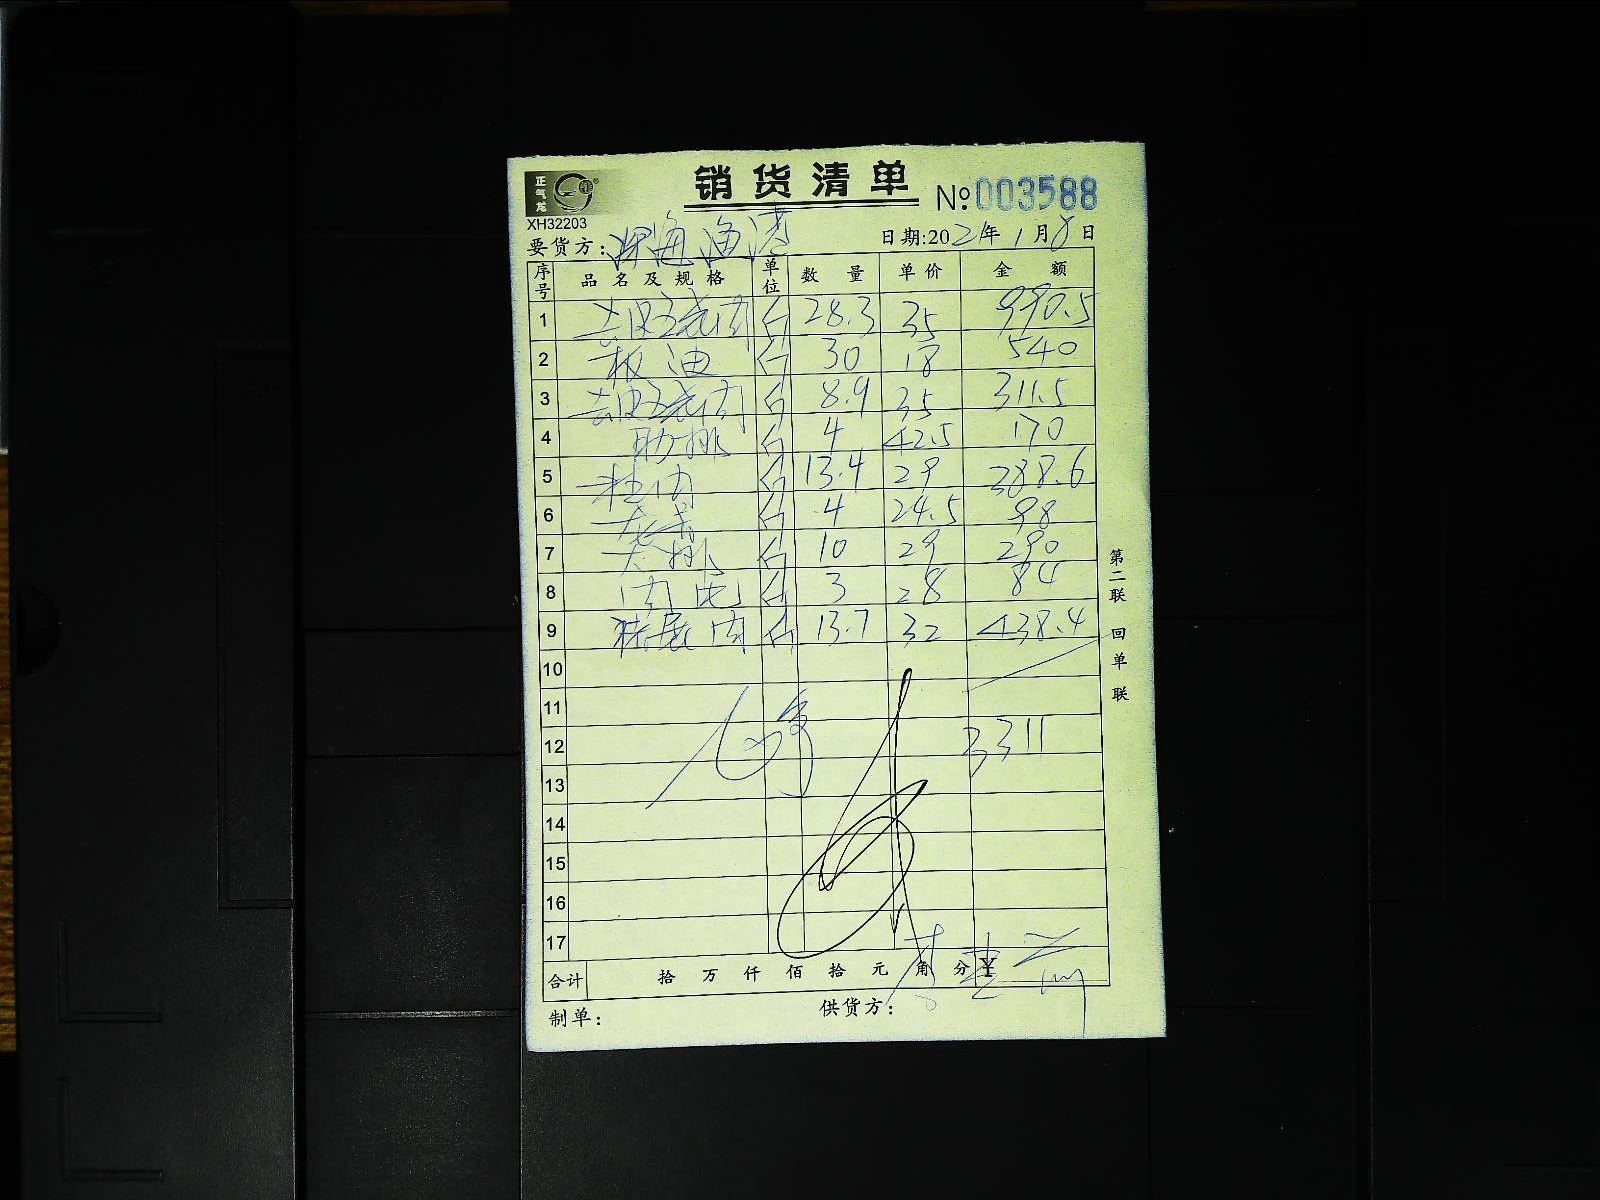 正气龙
销货清单
№003588
XH32203
要货方: 深海渔港
日期:2021年1月8日
序号 品名及规格 单位 数量 单价 金额
1 去皮五花肉 斤 28.3 35 990.5
2 板油 斤 30 18 540
3 去皮五花肉 斤 8.9 35 311.5
4 肋排 斤 4 42.5 170
5 斤 13.4 29 388.6
6 斤 4 24.5 98
7 大排 斤 10 29 290
8 肉 斤 3 28 84
9 猪展肉 斤 13.7 32 438.4
10
11
12 3311
13
14
15
16
17
合计 拾 万 仟 佰 拾 元 角 分 ¥
制单:
供货方:
第二联 回单联